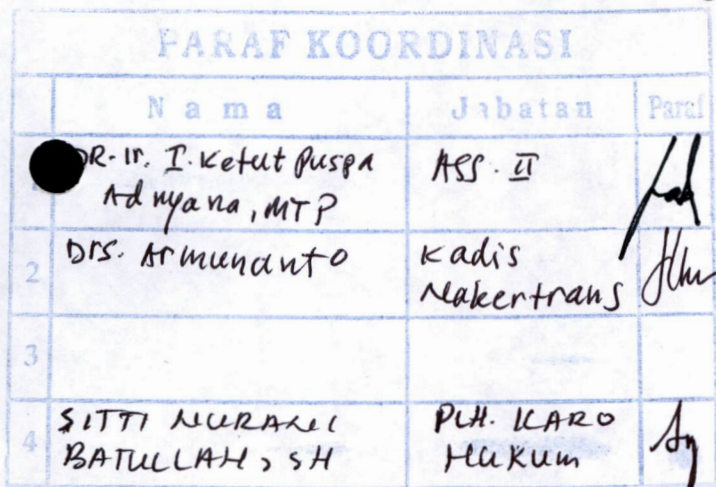 PARAF KOORDINASI
Nama Jabatan Paraf
DR. Ir. I. Ketut Puspa ASS. II
Adnyana, MTP
2 Drs. Armunanto Kadis
Nakertrans
3
4 SITTI PLH. KARO
BATULLAH, SH HUKUM